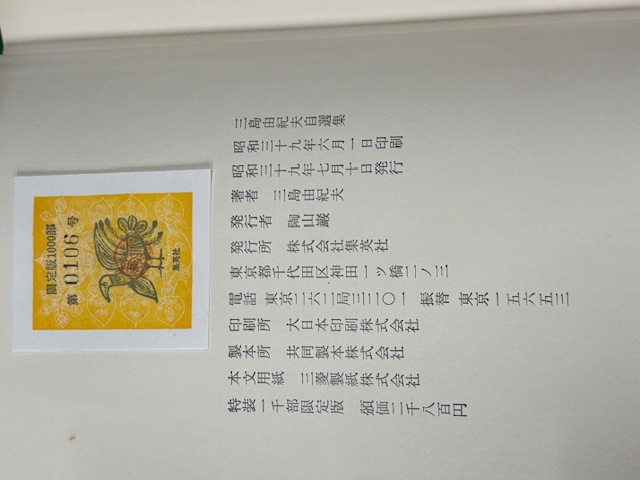 限定版1000部
第 0106 号
集英社
三島由紀夫自選集
昭和三十九年六月一日印刷
昭和三十九年七月十日発行
著者 三島由紀夫
発行者 陶山巌
発行所 株式会社集英社
東京都千代田区神田一ッ橋二ノ三
電話 東京二六二局三二〇一 振替 東京一五六五三
印刷所 大日本印刷株式会社
製本所 共同製本株式会社
本文用紙 三菱製紙株式会社
特装一千部限定版 頒価二千八百円